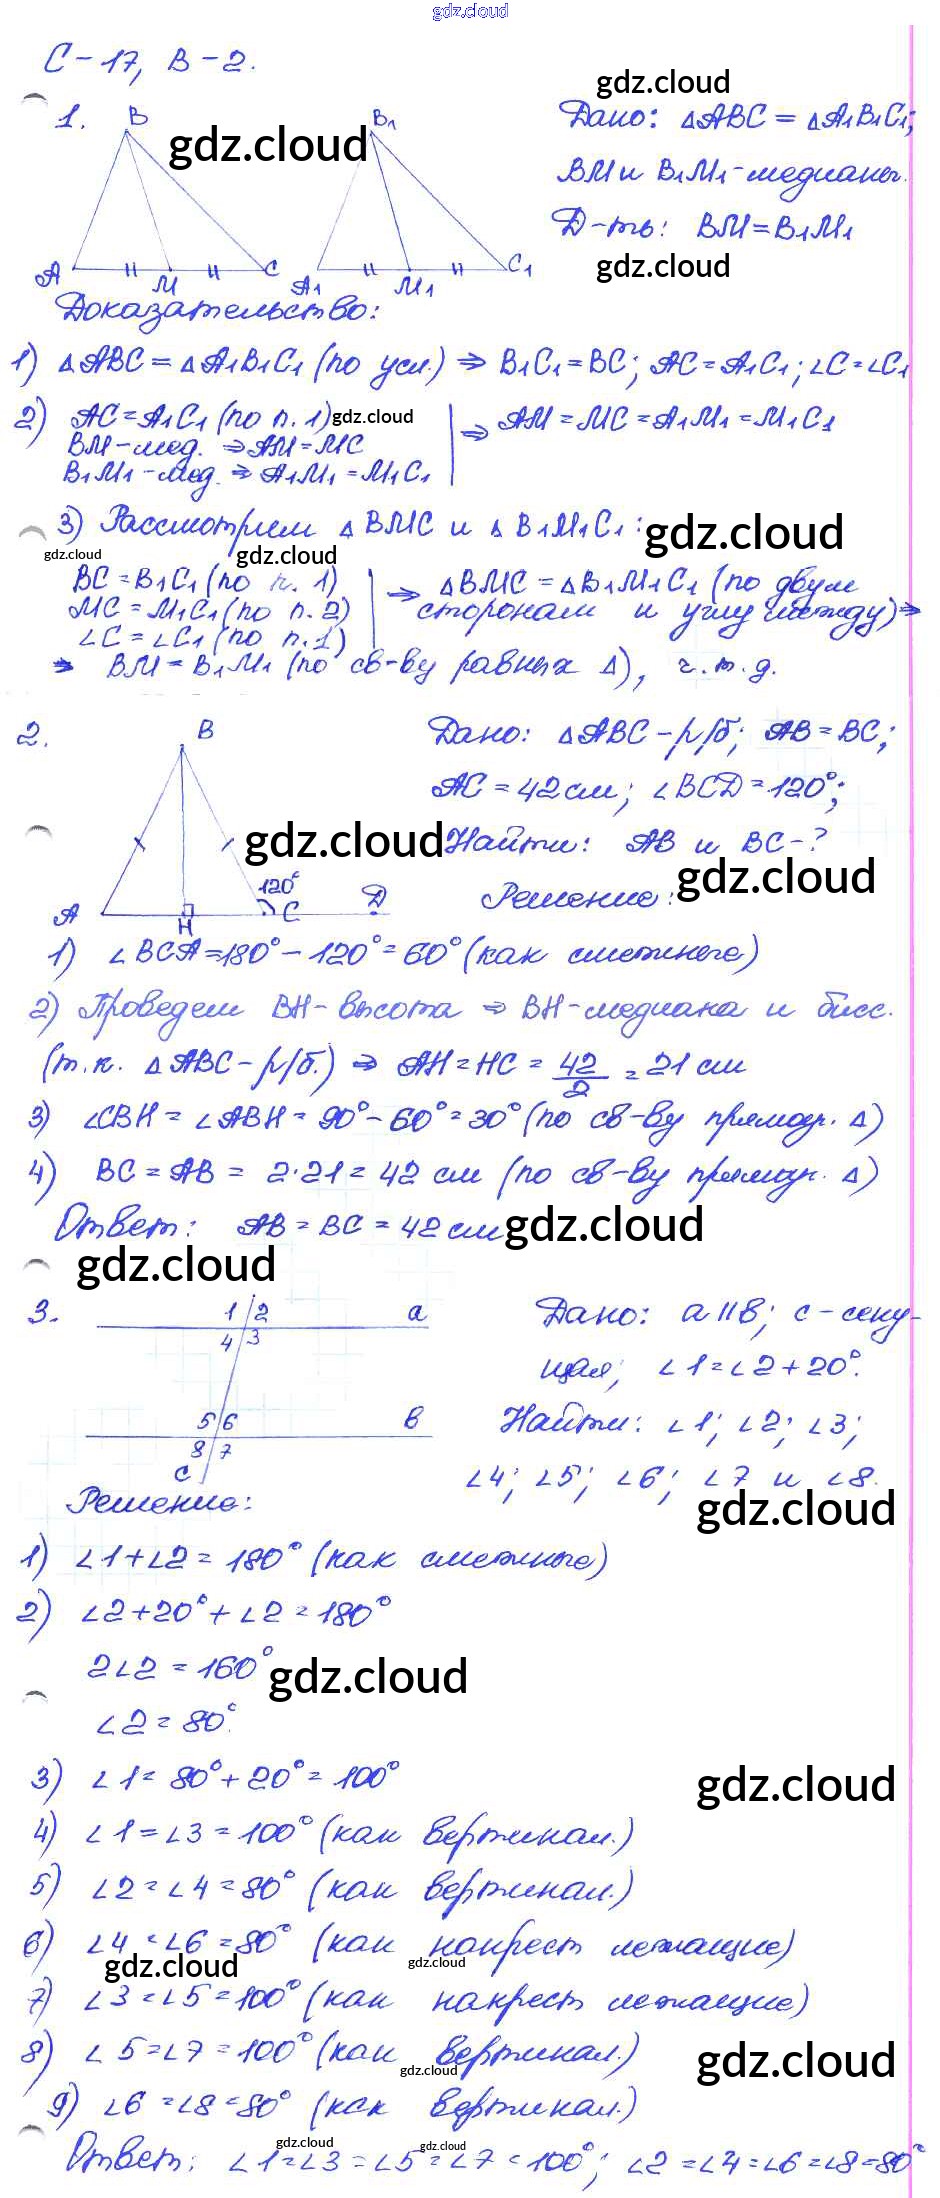 gdz.cloud
С-17, В-2.
gdz.cloud
1. B B₁ gdz.cloud Дано: △ABC = △A₁B₁C₁;
BM и B₁M₁-медианы.
Д-ть: BM=B₁M₁
gdz.cloud
A M C A₁ M₁ C₁
Доказательство:
1) △ABC = △A₁B₁C₁ (по усл.) ⇒ B₁C₁=BC; AC=A₁C₁; ∠C=∠C₁
2) AC=A₁C₁ (по п. 1) gdz.cloud ⇒ AM=MC=A₁M₁=M₁C₁
BM-мед. ⇒ AM=MC
B₁M₁-мед. ⇒ A₁M₁=M₁C₁
3) Рассмотрим △BMC и △B₁M₁C₁: gdz.cloud
gdz.cloud gdz.cloud
BC=B₁C₁ (по п. 1) ⇒ △BMC=△B₁M₁C₁ (по двум
MC=M₁C₁ (по п. 2) сторонам и углу между) ⇒
∠C=∠C₁ (по п. 1)
⇒ BM=B₁M₁ (по св-ву равных △), ч.т.д.
2. B Дано: △ABC-р/б; AB=BC;
AC=42см; ∠BCD=120°;
gdz.cloud Найти: AB и BC-?
gdz.cloud
120° Решение:
A H C D
1) ∠BCA=180°-120°=60° (как смежные)
2) Проведем BH-высота ⇒ BH-медиана и бисс.
(т.к. △ABC-р/б.) ⇒ AH=HC=42/2=21см
3) ∠CBH=∠ABH=90°-60°=30° (по св-ву прямоуг. △)
4) BC=AB=2·21=42 см (по св-ву прямоуг. △)
Ответ: AB=BC=42см gdz.cloud
gdz.cloud
3. 1 2 a Дано: a||b; c-секу-
4 3 щая; ∠1=∠2+20°.
5 6 b Найти: ∠1; ∠2; ∠3;
8 7 ∠4; ∠5; ∠6; ∠7 и ∠8.
c gdz.cloud
Решение:
1) ∠1+∠2=180° (как смежные)
2) ∠2+20°+∠2=180°
2∠2=160° gdz.cloud
∠2=80°.
3) ∠1=80°+20°=100° gdz.cloud
4) ∠1=∠3=100° (как вертикал.)
5) ∠2=∠4=80° (как вертикал.)
6) ∠4=∠6=80° (как накрест лежащие)
gdz.cloud gdz.cloud
7) ∠3=∠5=100° (как накрест лежащие)
8) ∠5=∠7=100° (как вертикал.) gdz.cloud
gdz.cloud
9) ∠6=∠8=80° (как вертикал.)
gdz.cloud gdz.cloud
Ответ: ∠1=∠3=∠5=∠7=100°; ∠2=∠4=∠6=∠8=80°